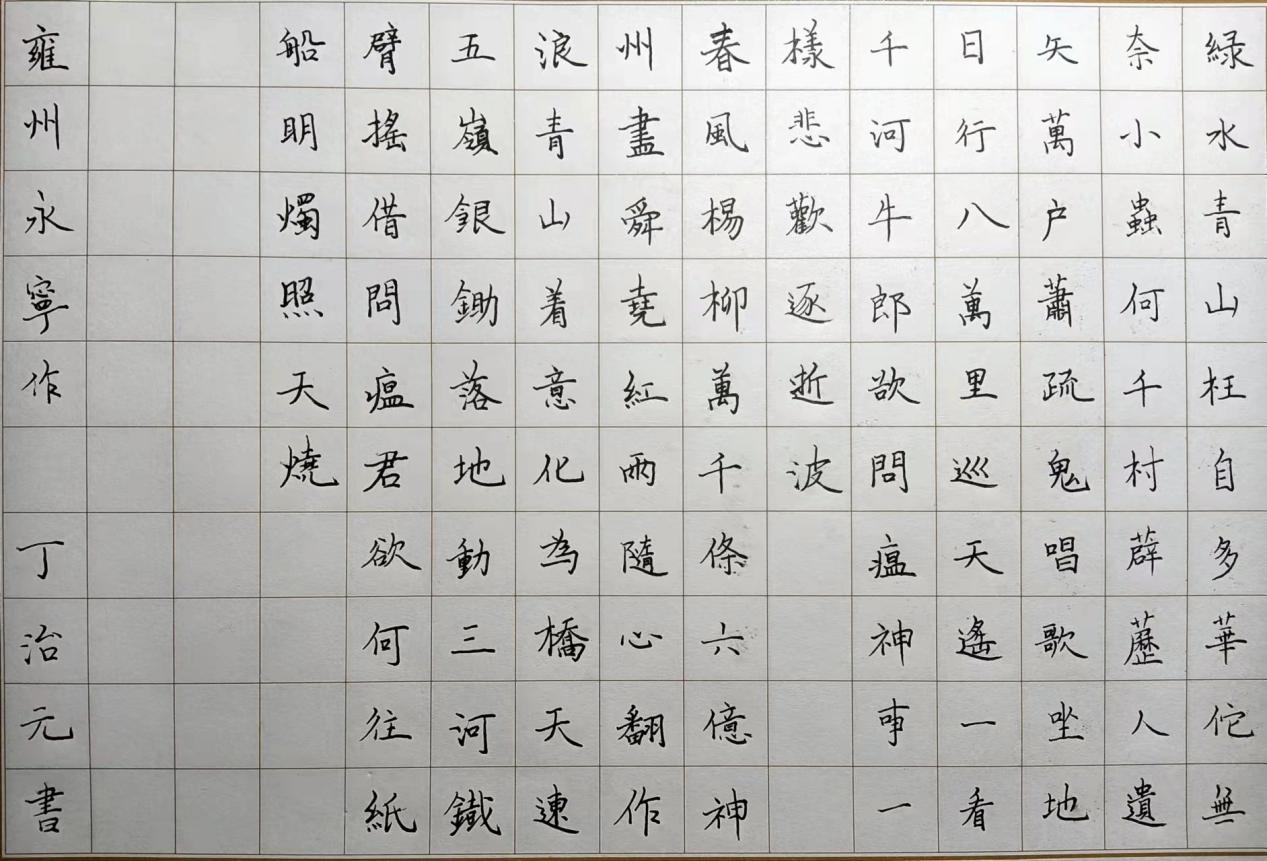 緑水青山枉自多華佗無
奈小蟲何千村薜藶人遺
矢萬户蕭疏鬼唱歌坐地
日行八萬里巡天遙一看
千河牛郎欲問瘟神事一
樣悲歡逐逝波
春風楊柳萬千條六億神
州盡舜堯紅雨隨心翻作
浪青山着意化為橋天連
五嶺銀鋤落地動三河鐵
臂搖借問瘟君欲何往紙
船明燭照天燒
雍州永寧作 丁治元書